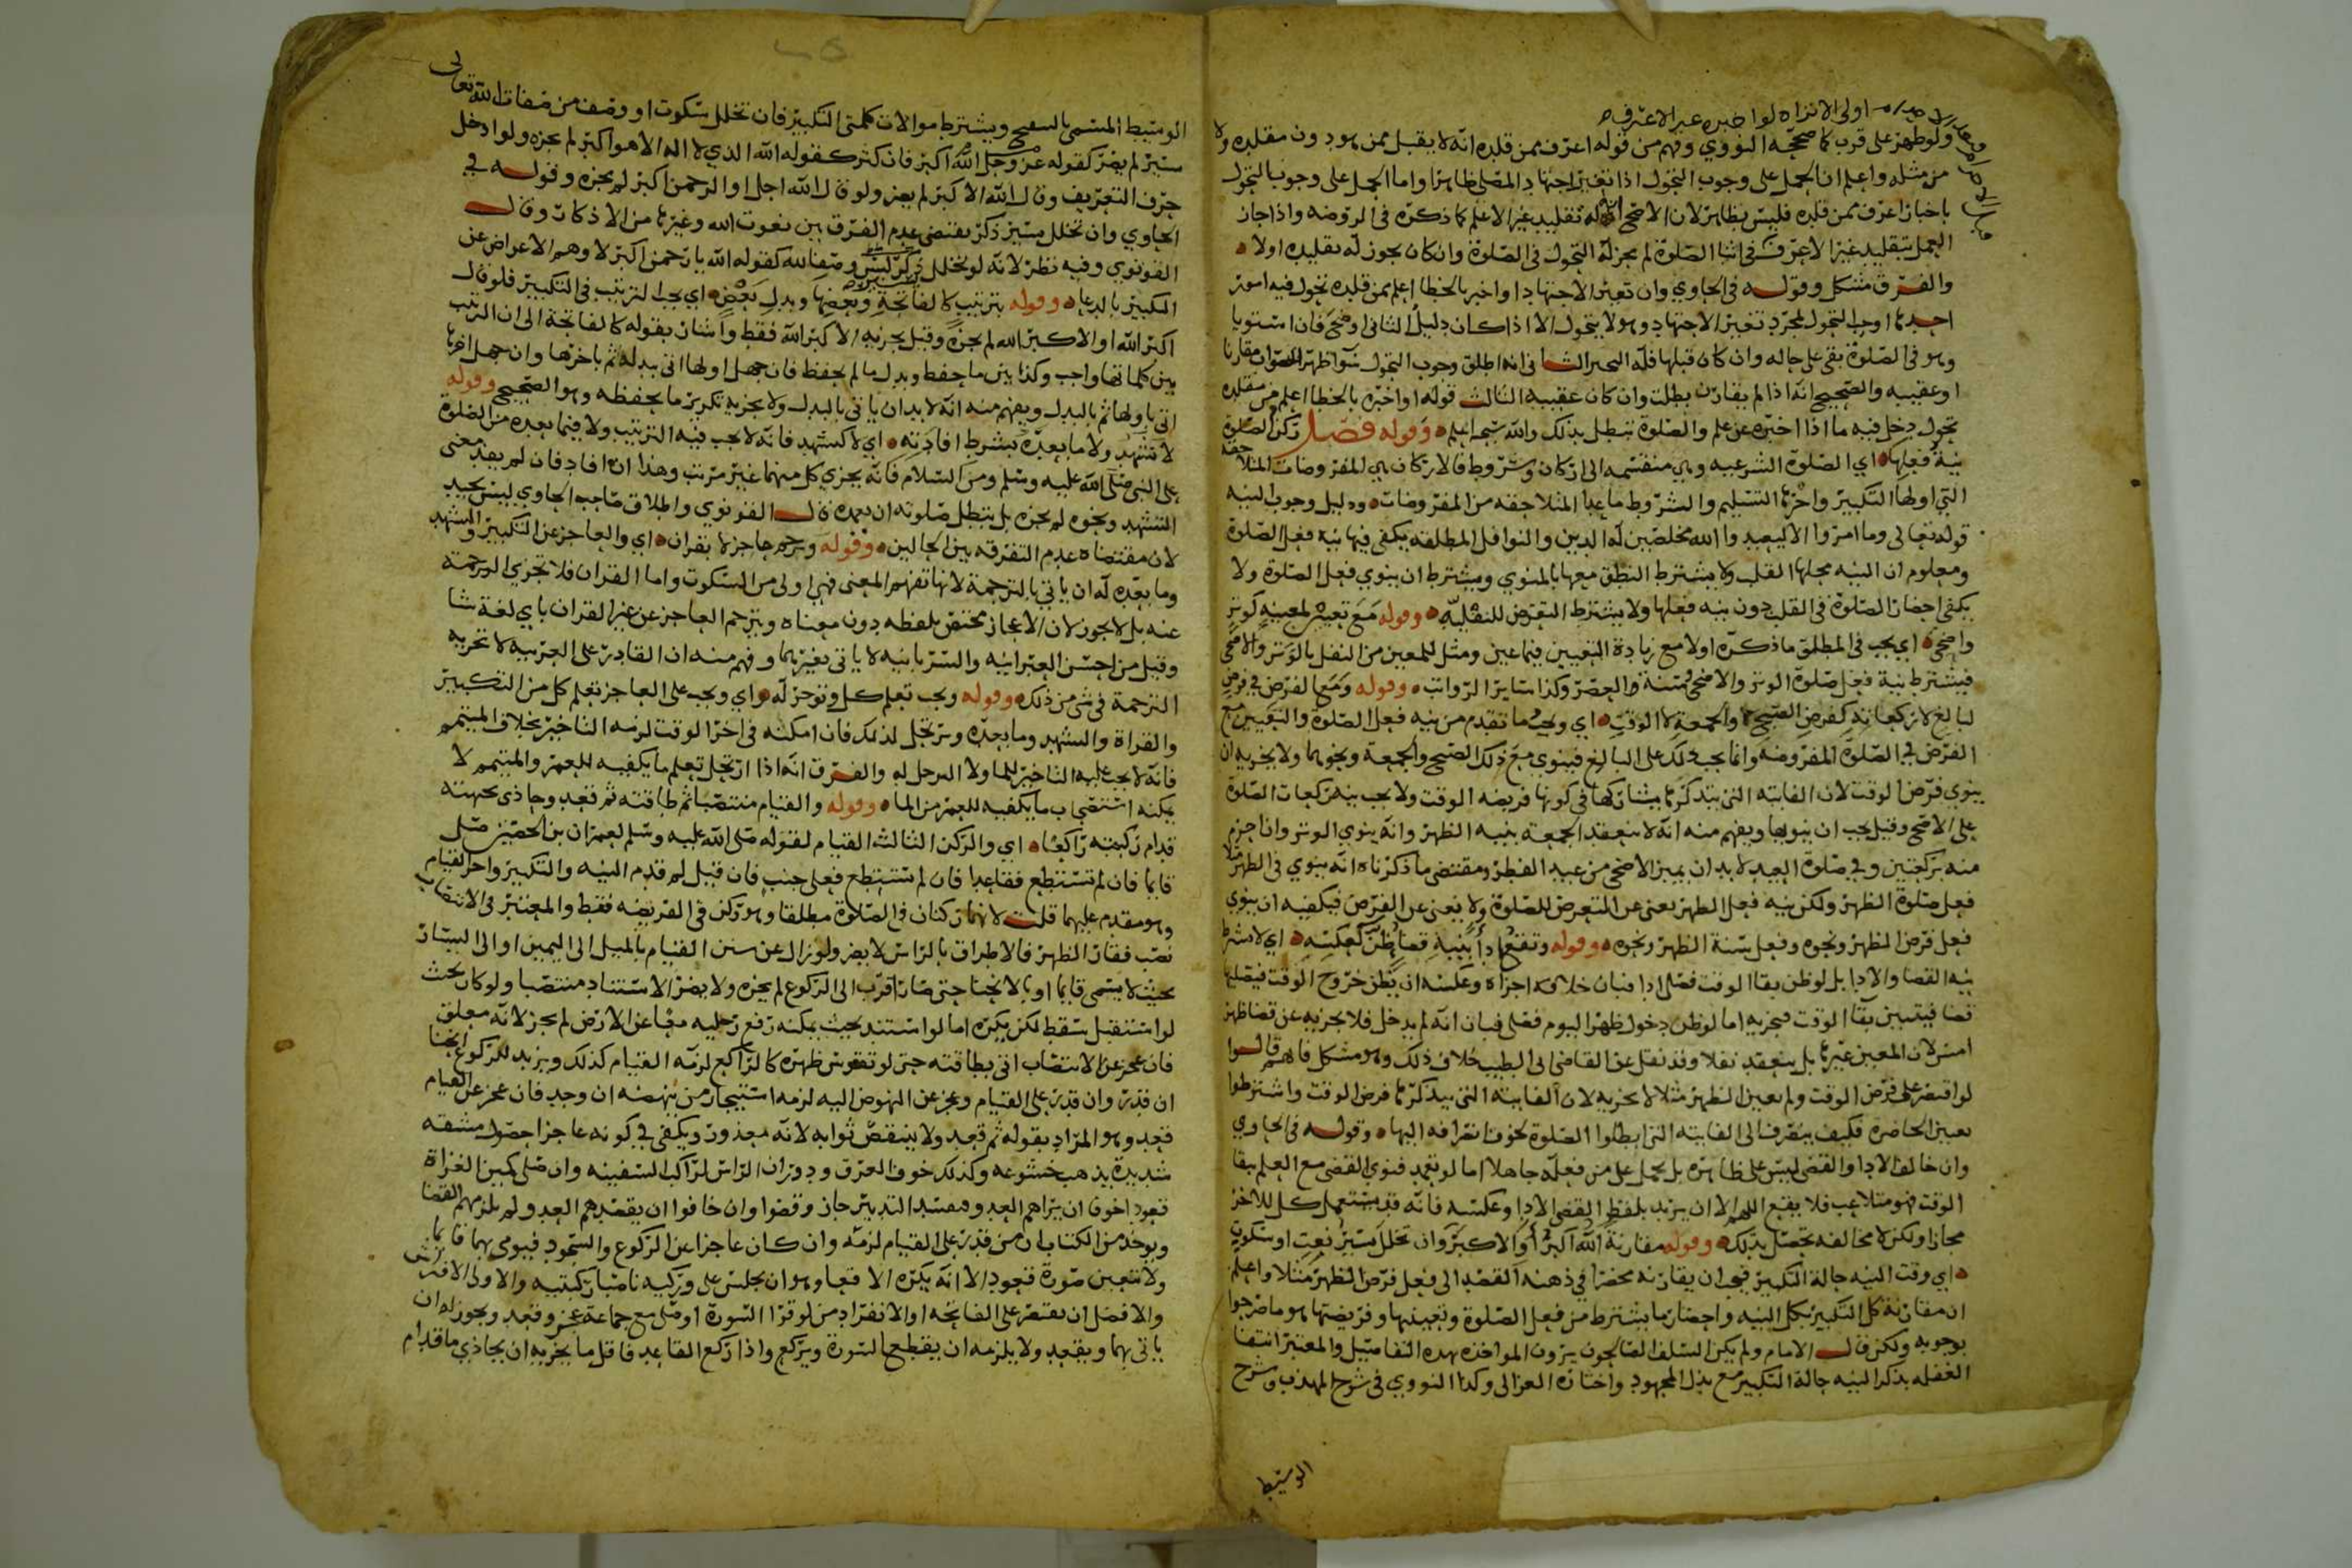 اولى الا تراه لو اخبره غير الاعرف
ولو ظهر على قرب كما صححه النووي وفهم من قوله اعرف ممن قلده انه لا يقبل ممن هو دون مقلده ولا
من مثله واعلم ان الحمل على وجوب التحول اذا تغير اجتهاد المصلي ظاهر واما الحمل على وجوب التحول
باخبار اعرف ممن قلده فليس بظاهر لان الاصح ان له تقليد غير الاعلم كما ذكره في الروضه واذا جاز
العمل بتقليد غير الاعرف في اثنا الصلوة لم يجز له التحول في الصلوة وان كان يجوز له تقليده اولا
والفرق مشكل وقوله في الحاوي وان تغير الاجتهاد او اخبر بالخطا اعلم ممن قلده تحول فيه امور
احدها اوجب التحول لمجرد تغير الاجتهاد وهو لا يتحول الا اذا كان دليل الثاني اوضح فان استويا
وهو في الصلوة بقي على حاله وان كان قبلها فله التخير الثاني انه اطلق وجوب التحول سوا ظهر الصواب مقارنا
او عقيبه والصحيح انه اذا لم يقارن بطلت وان كان عقيبه الثالث قوله او اخبره بالخطا اعلم من مقلده
تحول دخل فيه ما اذا اخبره عن علم والصلوة تبطل بذلك والله اعلم وقوله فصل ركن الصلوة
نية فعلها اي الصلوة الشرعيه وهي منقسمه الى اركان وشروط فالاركان هي المفروضات المتلاحقه
التي اولها التكبير واخرها التسليم والشروط ما عدا المتلاحقه من المفروضات ودليل وجوب النيه
قوله تعالى وما امروا الا ليعبدوا الله مخلصين له الدين والنوافل المطلقه يكفي فيها نيه فعل الصلوة
ومعلوم ان النيه محلها القلب ولا يشترط النطق معها بالمنوي ويشترط ان ينوي فعل الصلوة ولا
يكفي احضار الصلوة في القلب دون نيه فعلها ولا يشترط التعرض للنفليه وقوله مع تعيين لمعينه كوتر
واضحى اي يجب في المطلق ما ذكره اولا مع زيادة التعيين فيما عين ومثل للمعين من النفل بالوتر والاضحى
فيشترط نية فعل صلوة الوتر والاضحى وسنة العصر وكذا ساير الرواتب وقوله ومع الفرض في فرض
لبالغ لا ركعاته كفرض الصبح والجمعة لا الوقت اي ويجب ما تقدم من نيه فعل الصلوة والتعيين مع
الفرض في الصلوة المفروضه وانما يجب ذلك على البالغ فينوي مع ذلك الصبح والجمعة ونحوهما ولا يجزيه ان
ينوي فرض الوقت لان الفايته التي يتذكرها يشاركها في كونها فريضه الوقت ولا يجب نيه ركعات الصلوة
على الاصح وقيل يجب ان ينويها ويفهم منه انه لا تنعقد الجمعة بنيه الظهر وانه ينوي الوتر وان احرم
منه بركعتين وفي صلوة العيد لا بد ان يميز الاضحى من عيد الفطر ومقتضى ما ذكرناه انه ينوي في الظهر مثلا
فعل صلوة الظهر ولكن نيه فعل الظهر يغني عن التعرض للصلوة ولا يغني عن الفرض فيكفيه ان ينوي
فعل فرض الظهر ونحوه وفعل سنة الظهر ونحوه وقوله وتقع اداً بنية قضا ظن كعكسه اي لا يشترط
نيه القضا والادا بل لو ظن بقا الوقت فصلى ادا فبان خلافه اجزاه وعكسه ان يظن خروج الوقت فيصليها
قضا فيتبين بقا الوقت فيجزيه اما لو ظن دخول ظهر اليوم فصلى فبان انه لم يدخل فلا يجزيه عن قضا ظهر
امس لان المعين غيرها بل ينعقد نفلا وقد نقل عن القاضي ابي الطيب خلاف ذلك وهو مشكل فانهم قالوا
لو اقتصر على فرض الوقت ولم يعين الظهر مثلا لا يجزيه لان الفايته التي يتذكرها فرض الوقت واشترطوا
تعيين الحاضره فكيف يصرف الى الفايته التي ابطلوا الصلوة لخوف انصرافه اليها وقوله في الحاوي
وان خالف الادا والقضى ليس على ظاهره بل يحمل على من فعله جاهلا اما لو تعمد فنوى القضى مع العلم ببقا
الوقت فهو متلاعب فلا يقع اللهم الا ان يريد بلفظ القضى الادا وعكسه فانه قد يستعمل كل للاخر
مجازا ولكن لا مخالفه تحصل بذلك وقوله مقارنة الله اكبر او الاكبر وان تخلل يسير نعت او سكوت
اي وقت النيه حالة التكبير فيجب ان يقارنه محضرا في ذهنه القصد الى فعل فرض الظهر مثلا واعلم
ان مقارنة كل التكبير بكل النيه واحضار ما يشترط من فعل الصلوة وتعيينها وفريضتها هو ما صرحوا
بوجوبه ولكن قال الامام ولم يكن السلف الصالحون يرون المواخذه بهذه التفاصيل والمعتبر انتفا
الغفله بذكر النيه حالة التكبير مع بذل المجهود واختاره الغزالي وكذا النووي في شرح المهذب وشرح
الوسيط
الوسيط المسمى بالتنقيح ويشترط موالات كلمتي التكبير فان تخلل سكوت او وصف من صفات الله تعالى
يسير لم يضر كقوله عز وجل الله اكبر فان كثر كقوله الله الذي لا اله الا هو اكبر لم يجزه ولو ادخل
حرف التعريف وقال الله الاكبر لم يضر ولو قال الله اجل او الرحمن اكبر لم يجزه وقوله في
الحاوي وان تخلل يسير ذكر يقتضي عدم الفرق بين نعوت الله وغيرها من الاذكار وقال
القونوي وفيه نظر لانه لو تخلل ذكر ليس وصفا لله كقوله الله يا رحمن اكبر لا وهم الاعراض عن
التكبير بالدعا وقوله بترتيب كالفاتحة وبعضها وبدل بعض اي يجب الترتيب في التكبير فلو قال
اكبر الله او الاكبر الله لم يجزه وقيل يجزيه الاكبر الله فقط واشار بقوله كالفاتحة الى ان الترتيب
بين كلماتها واجب وكذا بين ما حفظ وبدل ما لم يحفظ فان جهل اولها اتى ببدله ثم باخرها وان جهل اخرها
اتى باولها ثم بالبدل ويفهم منه انه لا بد ان ياتي بالبدل ولا يجزيه تكرير ما يحفظه وهو الصحيح وقوله
لا تشهد ولا ما بعده بشرط افادته اي لا كتشهد فانه لا يجب فيه الترتيب ولا فيما بعده من الصلوة
على النبي صلى الله عليه وسلم ومن السلام فانه يجزي كل منهما غير مرتب وهذا ان افاد فان لم يفد معنى
التشهد ونحوه لم يجزه بل تبطل صلوته ان تعمده قال القونوي واطلاق صاحب الحاوي ليس بجيد
لان مقتضاه عدم التفرقه بين الحالين وقوله وترجم عاجز لا بقران اي والعاجز عن التكبير والتشهد
وما بعده له ان ياتي بالترجمة لانها تفهم المعنى فهي اولى من السكوت واما القران فلا تجزي الترجمة
عنه بل لا يجوز لان الاعجاز مختص بلفظه دون معناه ويترجم العاجز عن غير القران باي لغة شا
وقيل من احسن العبرانيه والسريانيه لا ياتي بغيرهما وفهم منه ان القادر على العربيه لا تجزيه
الترجمة في شي من ذلك وقوله ويجب تعلم كل وتوخر له اي ويجب على العاجز تعلم كل من التكبير
والقراة والتشهد وما بعده ويرتحل لذلك فان امكنه في اخر الوقت لزمه التاخير بخلاف المتيمم
فانه لا يجب عليه التاخير للما ولا الرحيل له والفرق انه اذا ارتحل تعلم ما يكفيه للعمر والمتيمم لا
يمكنه استصحاب ما يكفيه للعمر من الما وقوله والقيام منتصبا ثم طاقته ثم قعد وحاذى جبهته
قدام ركبته راكعا اي والركن الثالث القيام لقوله صلى الله عليه وسلم لعمران بن الحصين صل
قايما فان لم تستطع فقاعدا فان لم تستطع فعلى جنب فان قيل لم قدم النيه والتكبير واخر القيام
وهو مقدم عليهما قلت لانهما ركنان في الصلوة مطلقا وهو ركن في الفريضه فقط والمعتبر في الانتصاب
نصب فقار الظهر فالاطراق بالراس لا يضر ولو زال عن سنن القيام بالميل الى اليمين او الى اليسار
بحيث لا يسمى قايما او بالانحنا حتى صار اقرب الى الركوع لم يجزه ولا يضر الاستناد منتصبا ولو كان بحيث
لو استقل سقط لكن يكره اما لو استند بحيث يمكنه رفع رجليه معا عن الارض لم يجز لانه معلق
فان عجز عن الانتصاب اتى بطاقته حتى لو تقوس ظهره كالراكع لزمه القيام كذلك ويزيد للركوع انحنا
ان قدر وان قدر على القيام وعجز عن النهوض اليه لزمه استيجار من ينهضه ان وجد فان عجز عن القيام
قعد وهو المراد بقوله ثم قعد ولا ينقص ثوابه لانه معذور ويكفي في كونه عاجزا حصول مشقه
شديدة يذهب خشوعه وكذلك خوف الغرق ودوران الراس لراكب السفينه وان صلى كمين الغزاة
قعودا خوفا ان يراهم العدو فيفسد التدبير جاز وقضوا وان خافوا ان يقصدهم العدو لم يلزمهم القضا
ويوخذ من الكتاب ان من قدر على القيام لزمه وان كان عاجزا عن الركوع والسجود فيومي بهما قايما
ولا تتعين صورة قعود الا انه يكره الاقعا وهو ان يجلس على وركيه ناصبا ركبتيه والاولى الافتراش
والافضل ان يقتصر على الفاتحه او الانفراد من لو قرا السورة او صلى مع جماعة عجز وقعد ويجوز له ان
ياتي بهما ويقعد ولا يلزمه ان يقطع السورة ويركع واذا ركع القاعد فاقل ما يجزيه ان يحاذي ما قدام